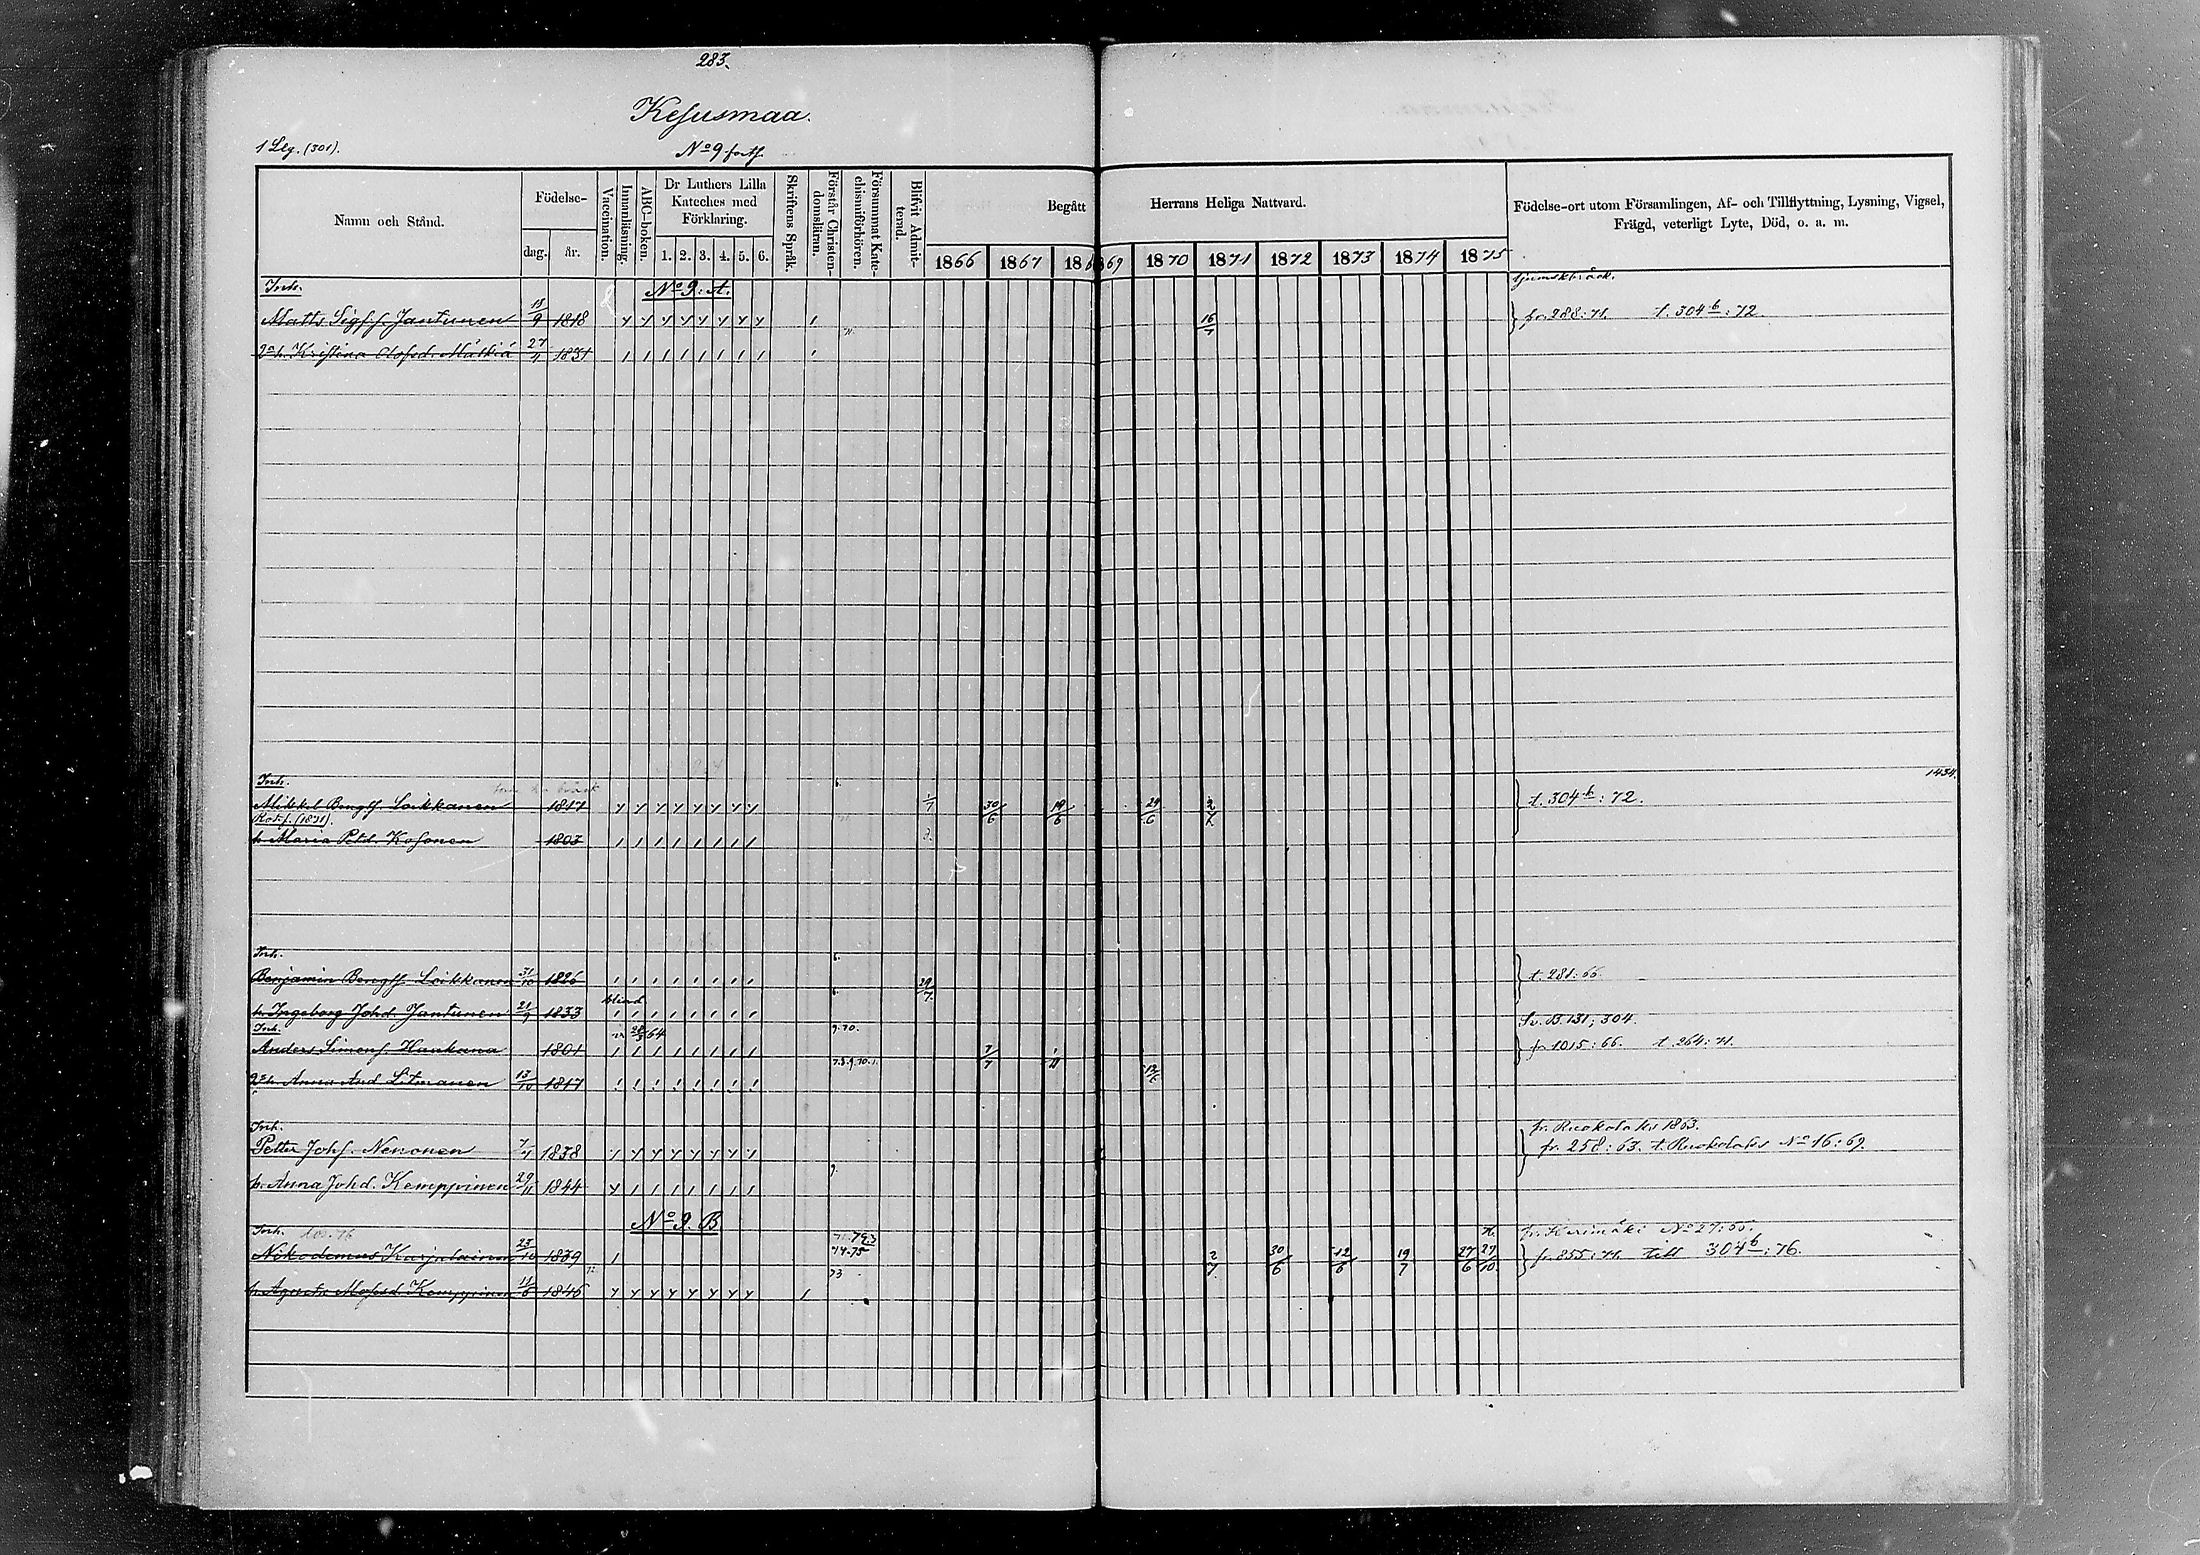 283.
Kesusmaa.
1 Leg. (301).
No 9 forts.
Namn och Stånd.
Födelse-
dag. år.
Vaccination.
Innanläsning.
ABC-boken.
Dr Luthers Lilla Kateches med Förklaring.
1. 2. 3. 4. 5. 6.
Skriftens Språk.
Förstår Christendomsläran.
Försummat Katechismiförhören.
Blifvit Admitterad.
Begått Herrans Heliga Nattvard.
1866 1867 186 69 1870 1871 1872 1873 1874 1875
Födelse-ort utom Församlingen, Af- och Tillflyttning, Lysning, Vigsel,
Frägd, veterligt Lyte, Död, o. a. m.
Inh. No 9: A.
Matts Sigf.f. Jantunen 18/9 1818 16/7 fr. 288:71. t. 304 b:72.
2a h. Kristina Olofsd. Mälkiä 27/4 1831
Inh. 1434.
Mikkel Bengtf. Loikkanen 1817 1/7 30/6 19/6 24/6 2/7 t. 304 b:72.
Rotf. (1871).
h. Maria Petd. Kosonen 1803
Inh.
Benjamin Bengtf. Loikkanen 31/10 1826 29/7. t. 281:66.
h. Ingeborg Johd. Jantunen 21/9 1833 blind
Inh. 9.70. Sv. B. 131; 304.
Anders Simonf. Haakana 1801 7/7 fr. 1015:66. t. 264:71.
7.8.9.70.1.
2a h. Anna And. Litmanen 13/10 1817
Inh. fr. Ruokolaks 1863.
Petter Johf. Nenonen 7/4 1838 fr. 258:63. t. Ruokolaks No 16:69.
h. Anna Johd. Kemppinen 29/11 1844
No 9. B
Inh. fr. Kerimäki No 27:65.
Nikodemus Karjalainen 23/10 1839 74.75 2/7 30/6 12/6 19/7 27/6 27/10 fr. 855:71. till 304 b:76.
73
h. Agneta Matsd. Kemppinen 11/6 1846